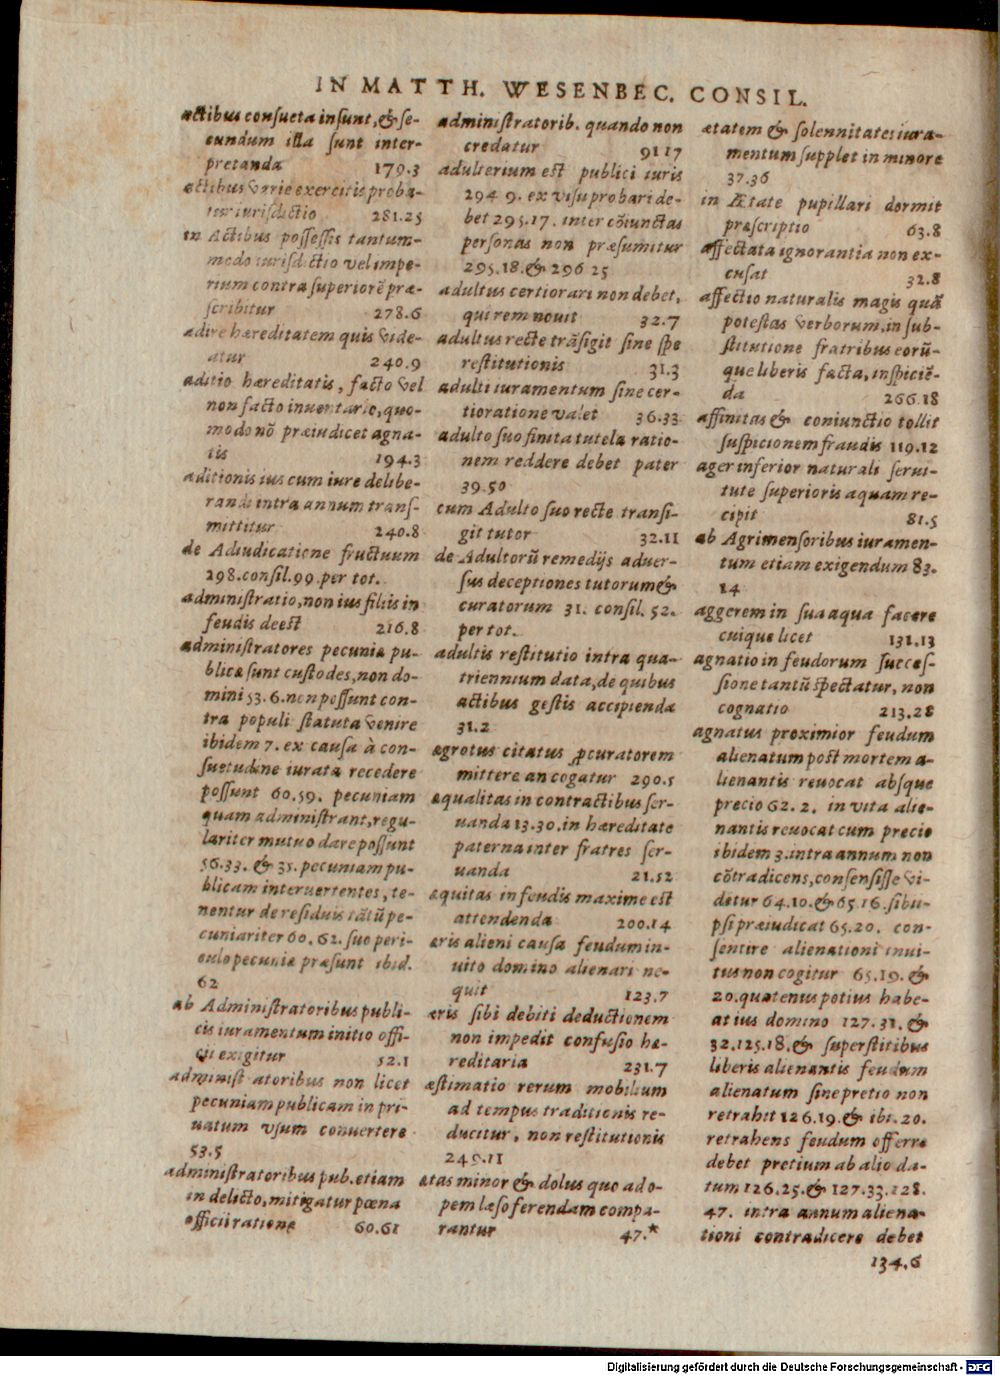 IN MATTH. WESENBEC. CONSIL.
actibus consueta insunt, & se-
cundum illa sunt inter-
pretanda 179.3
actibus varie exercitis proba-
tur iurisdictio 281.25
in Actibus possessis tantum-
modo iurisdictio vel impe-
rium contra superiorē præ-
scribitur 278.6
adire hæreditatem quis vide-
atur 240.9
aditio hæreditatis, facto vel
non facto inuentario, quo-
modo nō præiudicet agna-
tis 194.3
aditionis ius cum iure delibe-
randi intra annum trans-
mittitur 240.8
de Adiudicatione fructuum
298. consil. 99. per tot.
administratio, non ius filiis in
feudis deest 216.8
administratores pecuniæ pu-
blicæ sunt custodes, non do-
mini 53.6. non possunt con-
tra populi statuta venire
ibidem 7. ex causa à con-
suetudine iurata recedere
possunt 60.59. pecuniam
quam administrant, regu-
lariter mutuo dare possunt
56.33. & 35. pecuniam pu-
blicam interuertentes, te-
nentur de residuis tātū pe-
cuniariter 60.62. suo peri-
culo pecuniæ præsunt ibid.
62
ab Administratoribus publi-
cis iuramentum initio offi-
cij exigitur 52.1
administ atoribus non licet
pecuniam publicam in pri-
uatum vsum conuertere
53.5
administratoribus pub. etiam
in delicto, mitigatur pœna
officii ratione 60.61
administratorib. quando non
credatur 91 17
adulterium est publici iuris
294 9. ex visu probari de-
bet 295.17. inter cōiunctas
personas non præsumitur
295.18. & 296 25
adultus certiorari non debet,
qui rem nouit 32.7
adultus recte trāsigit sine spe
restitutionis 31.3
adulti iuramentum sine cer-
tioratione valet 36.33
adulto suo finita tutela ratio-
nem reddere debet pater
39.50
cum Adulto suo recte transi-
git tutor 32.11
de Adultorū remedijs aduer-
sus deceptiones tutorum &
curatorum 31. consil. 52.
per tot.
adultis restitutio intra qua-
triennium data, de quibus
actibus gestis accipienda
31.2
ægrotus citatus ꝓcuratorem
mittere an cogatur 290.5
æqualitas in contractibus ser-
uanda 13.30. in hæreditate
paterna inter fratres ser-
uanda 21.52
æquitas in feudis maxime est
attendenda 200.14
æris alieni causa feudum in-
uito domino alienari ne-
quit 123.7
æris sibi debiti deductionem
non impedit confusio hæ-
reditaria 231.7
æstimatio rerum mobilium
ad tempus traditionis re-
ducitur, non restitutionis
249.11
ætas minor & dolus quo ad o-
pem læso ferendam compa-
rantur 47.*
ætatem & solennitates iura-
mentum supplet in minore
37.36
in Ætate pupillari dormit
præscriptio 63.8
affectata ignorantia non ex-
cusat 32.8
affectio naturalis magis quā
potestas verborum, in sub-
stitutione fratribus eorū-
que liberis facta, inspiciē-
da 266.18
affinitas & coniunctio tollit
suspicionem fraudis 119.12
ager inferior naturali serui-
tute superioris aquam re-
cipit 81.5
ab Agrimensoribus iuramen-
tum etiam exigendum 83.
14
aggerem in sua aqua facere
cuique licet 131.13
agnatio in feudorum succes-
sione tantū spectatur, non
cognatio 213.28
agnatus proximior feudum
alienatum post mortem a-
lienantis reuocat absque
precio 62. 2. in vita alie-
nantis reuocat cum precio
ibidem 3. intra annum non
cōtradicens, consensisse vi-
detur 64.10. & 65.16. sibi i-
psi præiudicat 65.20. con-
sentire alienationi inui-
tus non cogitur 65.19. &
20. quatenus potius habe-
at ius domino 127.31. &
32. 125.18. & superstitibus
liberis alienantis feudum
alienatum sine pretio non
retrahit 126.19. & ibi. 20.
retrahens feudum offerre
debet pretium ab alio da-
tum 126.25. & 127.33. 128.
47. intra annum aliena-
tioni contradicere debet
134.6
Digitalisierung gefördert durch die Deutsche Forschungsgemeinschaft - DFG